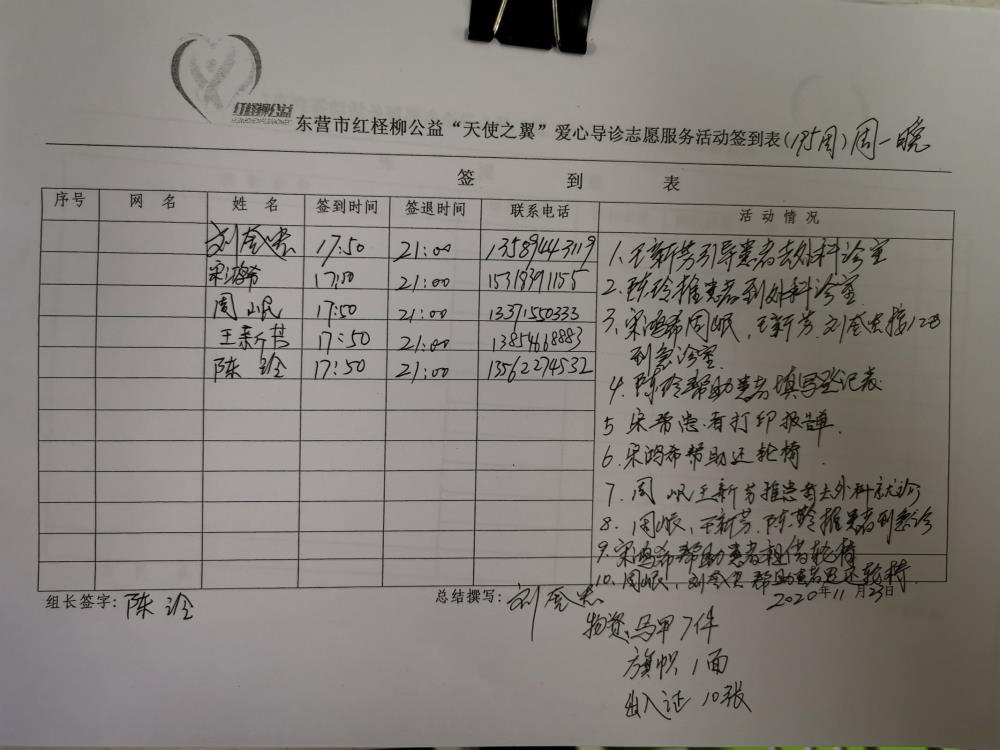 红柽柳公益
东营市红柽柳公益“天使之翼”爱心导诊志愿服务活动签到表(195周)周一晚
签 到 表
序号 网 名 姓 名 签到时间 签退时间 联系电话 活动情况
刘奎忠 17:50 21:00 13589443119
宋鸿希 17:50 21:00 15318391155
周岷 17:50 21:00 13371550333
王新芳 17:50 21:00 13854668883
陈玲 17:50 21:00 13562274532
1.王新芳引导患者去外科诊室
2.陈玲推患者到外科诊室
3.宋鸿希周岷,王新芳.刘奎忠接120
到急诊室.
4.陈玲帮助患者填写登记表
5 宋希患者打印报告单.
6.宋鸿希帮助还轮椅
7.周岷王新芳推患者去外科就诊
8.周岷,王新芳.陈玲推患者到急诊
9.宋鸿希帮助患者租借轮椅
10.周岷,刘奎忠帮助患者归还轮椅.
组长签字:陈玲 总结撰写:刘奎忠 2020年11月23日
物资马甲7件
旗帜1面
出入证10张